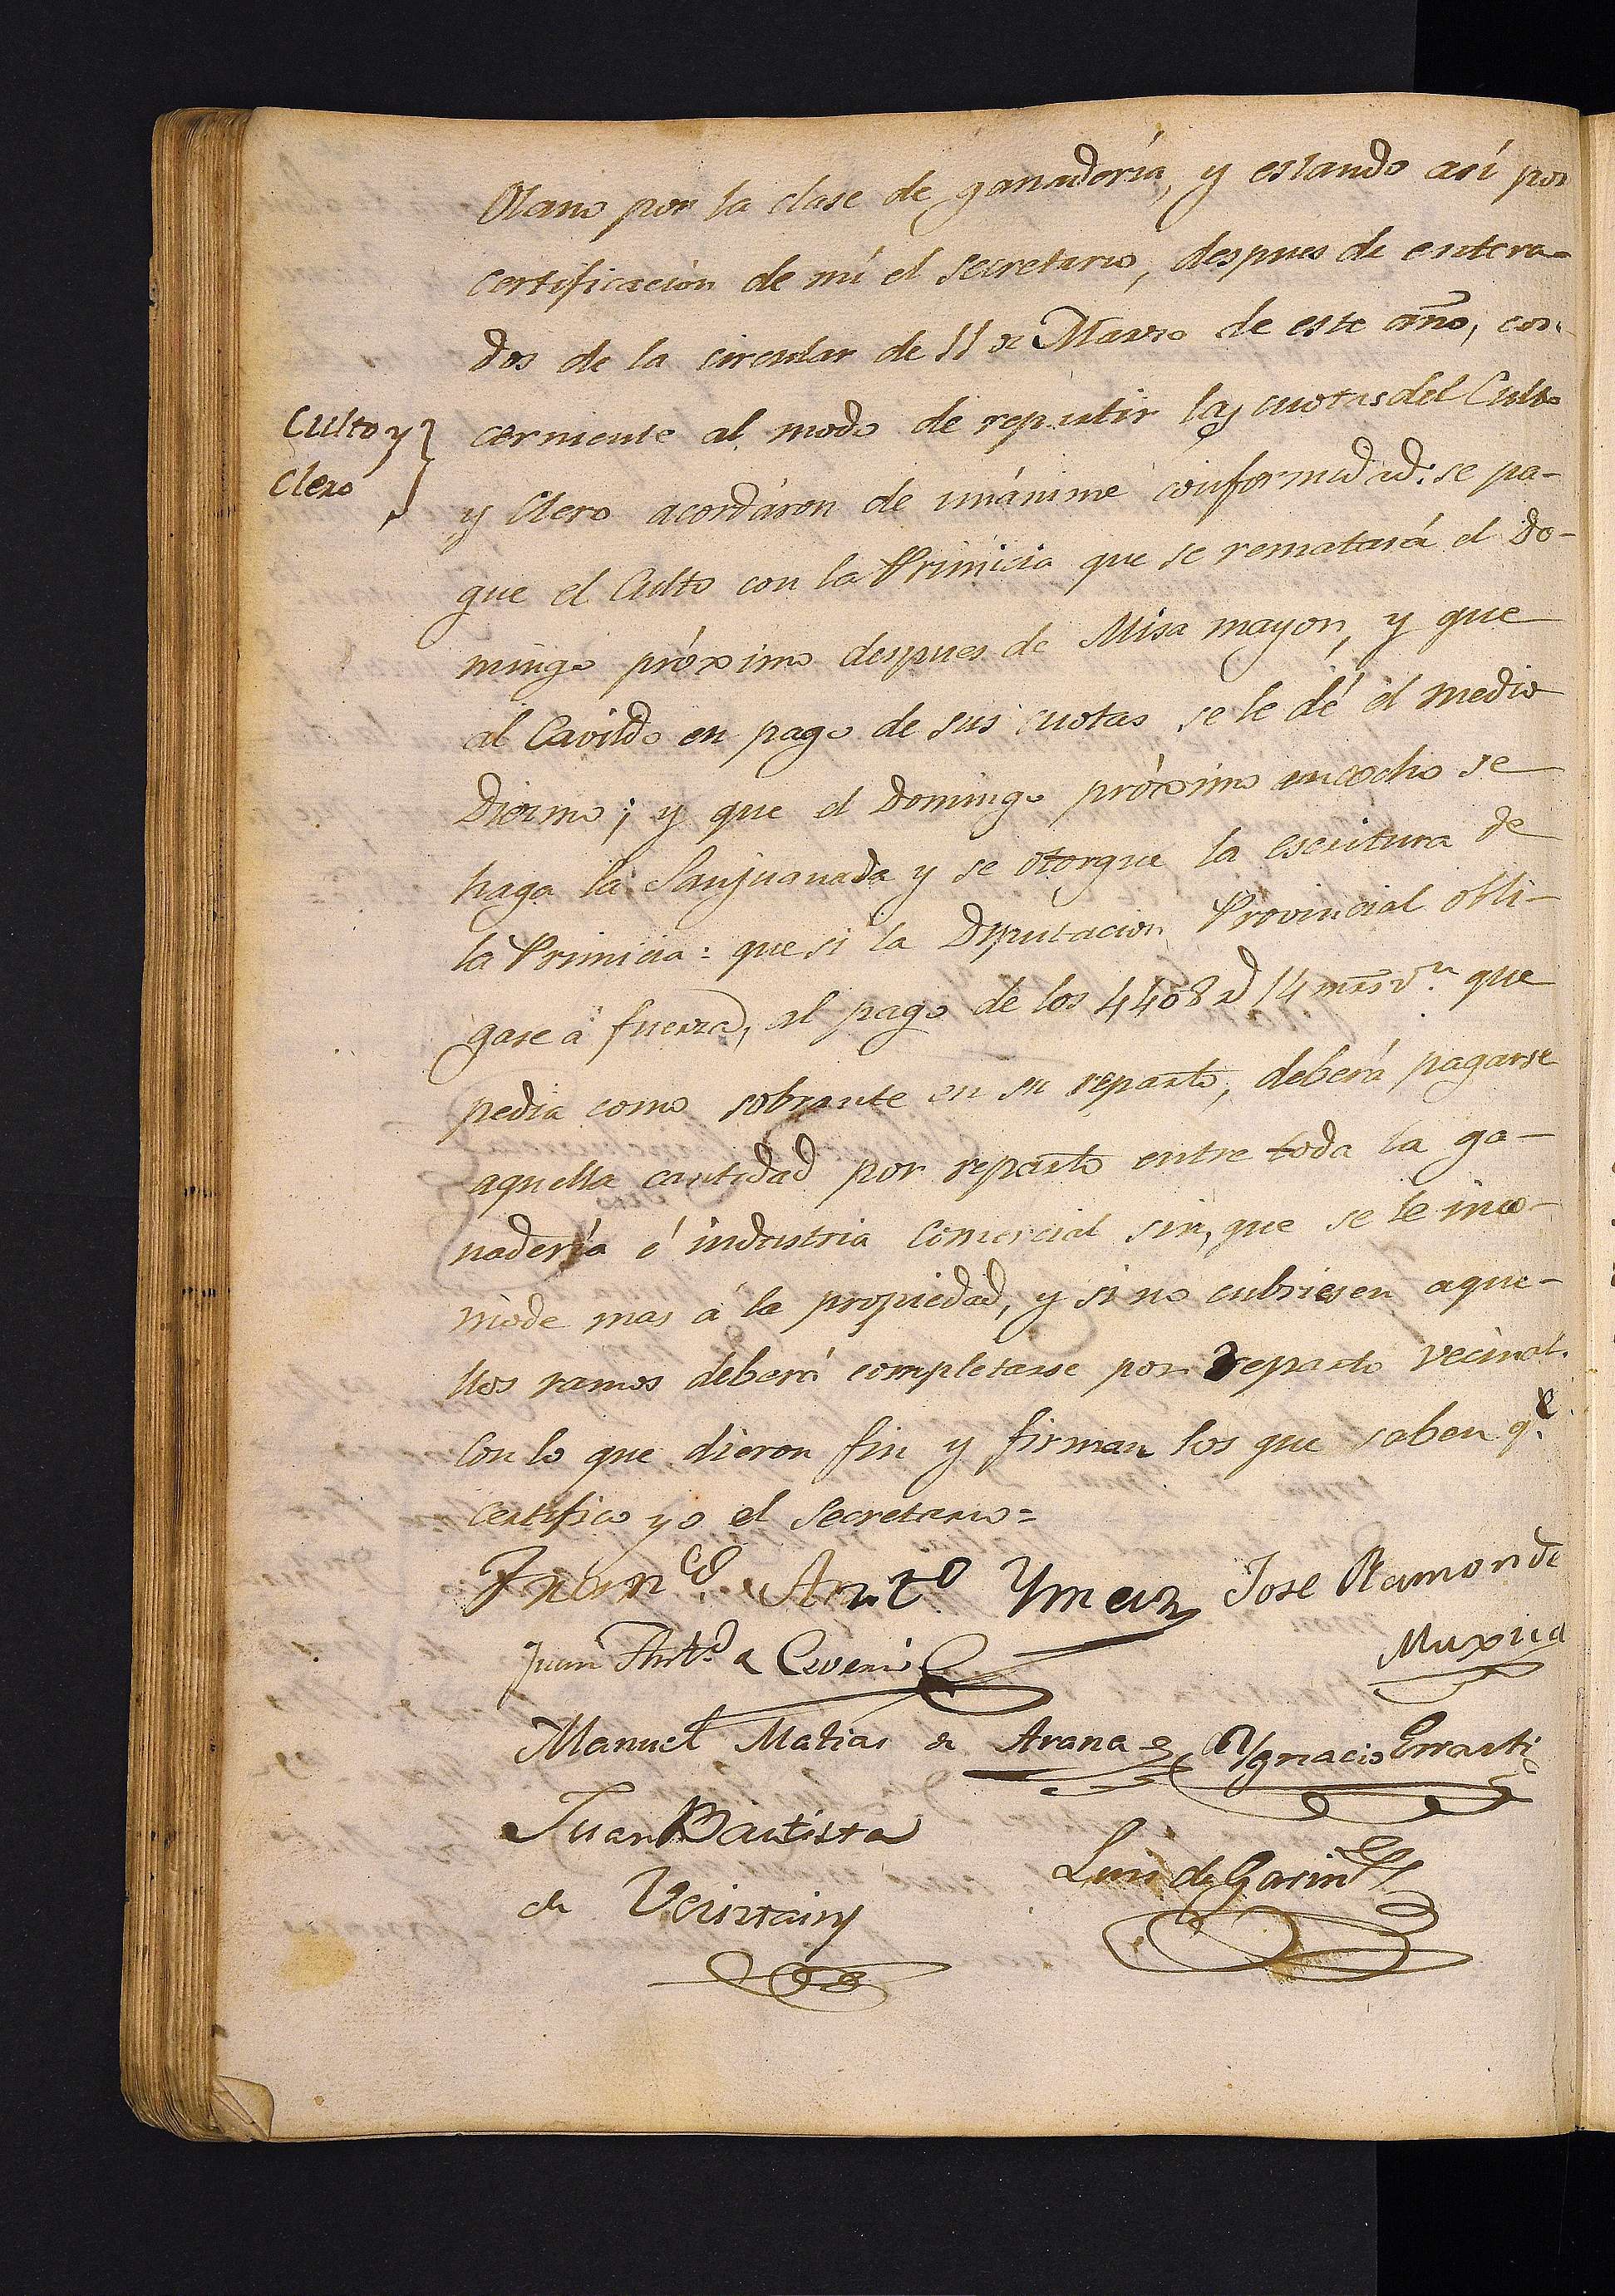 Olano por la clase de ganadería, y estando así por
certificacion de mí el secretario, despues de entera-
dos de la circular de 11 de Marzo de este año, con-
Culto y
Clero
cerniente al modo de repartir las cuotas del Culto
y Clero acordáron de unánime conformidad: se pa-
gue el Culto con la Primicia que se rematará el Do-
mingo próximo despues de Misa mayor, y que
al Cavildo en pago de sus cuotas se le dé el medio
Diezmo; y que el Domingo próximo en ocho se
haga la Sanjuanada y se otorgue la escritura de
la Primicia: que si la Diputacion Provincial obli-
gase á fuerza, al pago de los 4408 14 mrs vn. que
pedia como sobrante en su reparto, deberá pagarse
aquella cantidad por reparto entre toda la ga-
nadería é industria Comercial sin, que se le inco-
mode mas á la propiedad, y si no cubriesen aque-
llos ramos deberá completarse por reparto vecinal.
Con lo que dieron fin y firman los que saben qe.
certifico yo el Secretario=
Franco. Anto. Ymaz Jose Ramon de
Muxica
Juan Anto. de
Manuel Matias de Arana Ygnacio Errasti
Juan Bautista
de
Luis de Garin